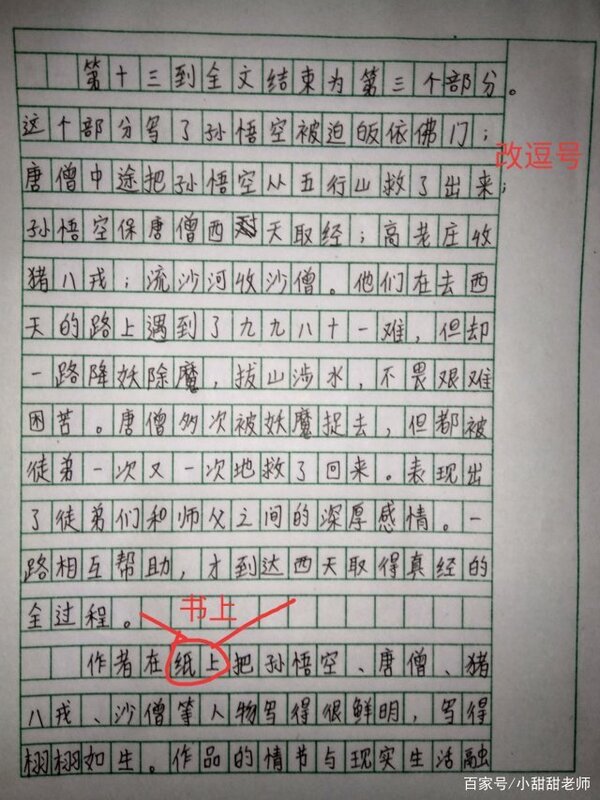 第十三到全文结束为第三个部分。
这个部分写了孙悟空被迫皈依佛门;
改逗号
唐僧中途把孙悟空从五行山救了出来;
孙悟空保唐僧西天取经;高老庄收
猪八戒;流沙河收沙僧。他们在去西
天的路上遇到了九九八十一难,但却
一路降妖除魔,拔山涉水,不畏艰难
困苦。唐僧多次被妖魔捉去,但都被
徒弟一次又一次地救了回来。表现出
了徒弟们和师父之间的深厚感情。一
路相互帮助,才到达西天取得真经的
全过程。
书上
作者在纸上把孙悟空、唐僧、猪
八戒、沙僧等人物写得很鲜明,写得
栩栩如生。作品的情节与现实生活融
百家号/小甜甜老师